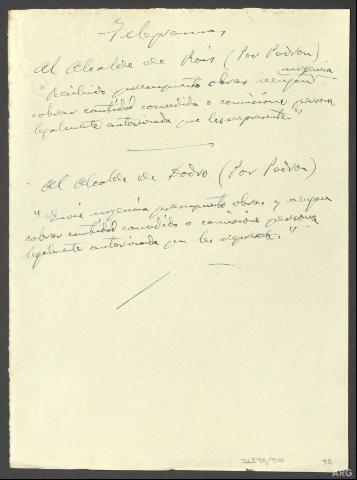 Telegramas
Al Alcalde de Rois (Por Padron)
urgencia
"Recibido presupuesto obras vengan
cobrar cantidad concedida o comisione persona
legalmente autorizada que les represente"
Al Alcalde de Dodro (Por Padron)
"Envie urgencia presupuesto obras y vengan
cobrar cantidad concedida o comisione persona
legalmente autorizada que les
31898/50
88
ARG